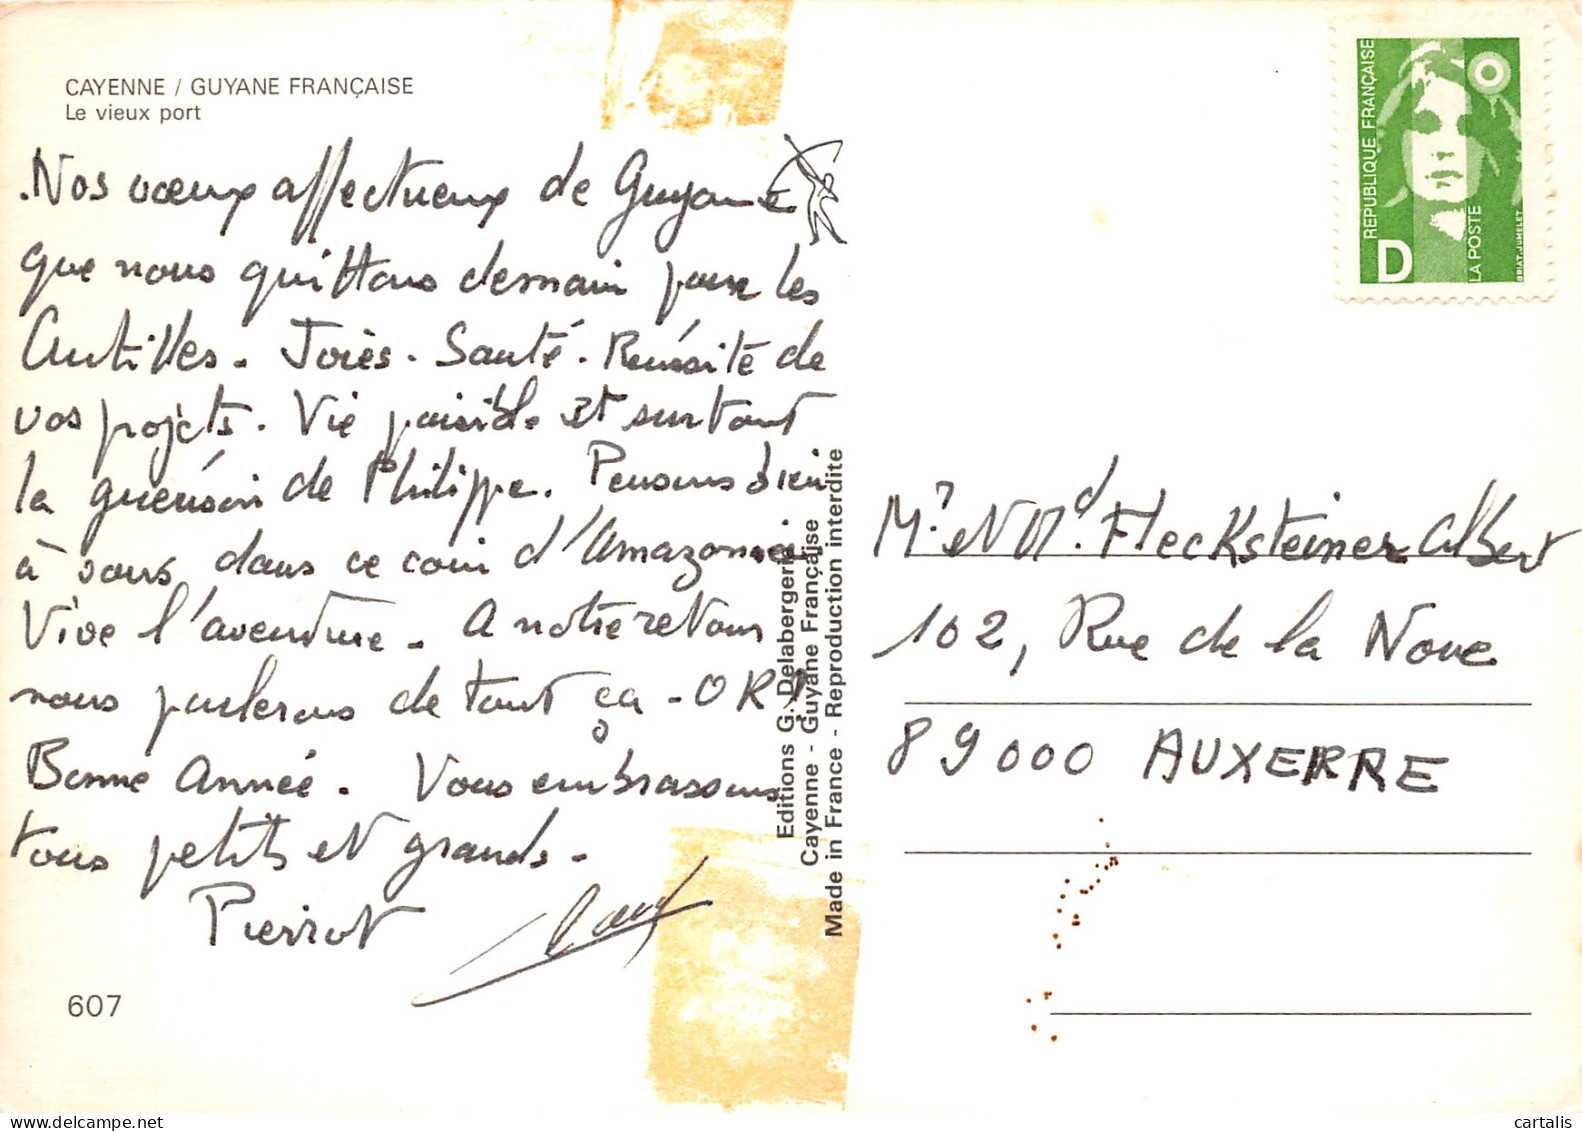 CAYENNE / GUYANE FRANÇAISE
Le vieux port
Nos vœux affectueux de Guyane
que nous quittons demain pour les
Antilles. Joies. Santé. Réussite de
vos projets. Vie paisible et surtout
la guérison de Philippe. Pensons bien
à vous dans ce coin d'Amazonie.
Vive l'aventure. A notre retour
nous parlerons de tout ça - O R
Bonne Année. Vous embrassons
tous petits et grands.
Pierrot
607
Editions G. Delabergerie.
Cayenne - Guyane Française
Made in France - Reproduction interdite
REPUBLIQUE FRANÇAISE
D
LA POSTE
BRIAT.JUMELET
Mr et Md. Flecksteiner Albert
102, Rue de la Noue
89000 AUXERRE
cartalis